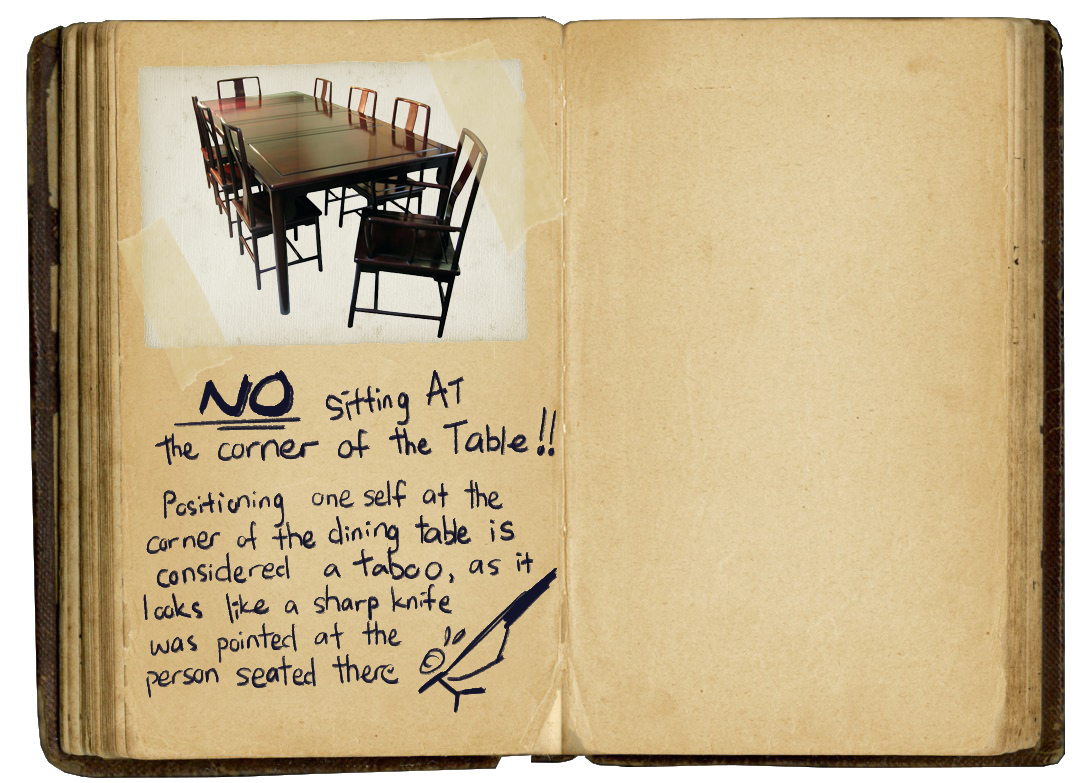 NO sitting AT
the corner of the Table!!
Positioning one self at the
corner of the dining table is
considered a taboo, as it
looks like a sharp knife
was pointed at the
person seated there